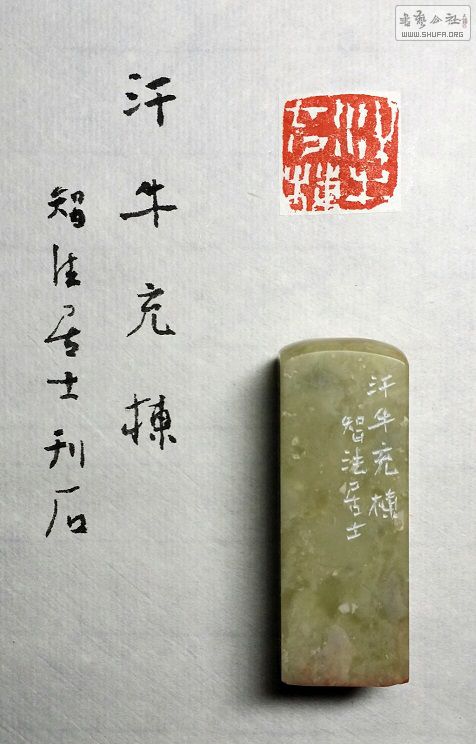 書藝公社
WWW.SHUFA.ORG
汗牛
充棟
汗牛充棟
智法居士刊石
汗牛充棟
智法居士